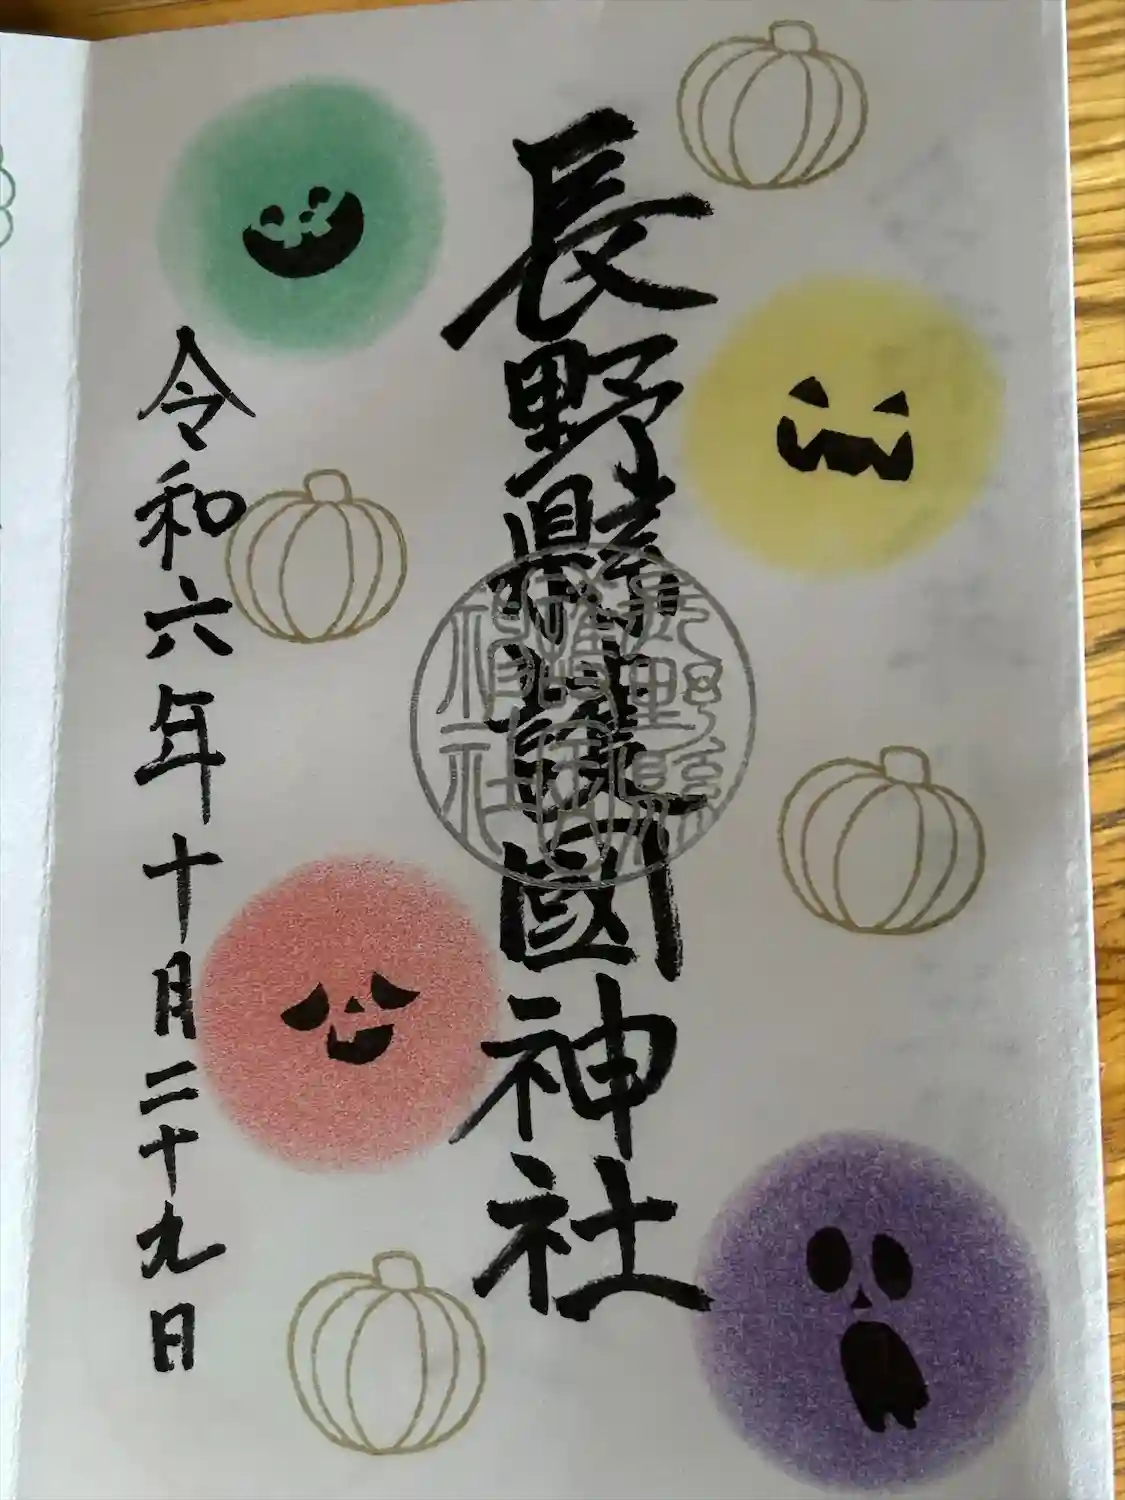 長野縣護國神社
令和六年十月二十九日
長野縣
護國
神社